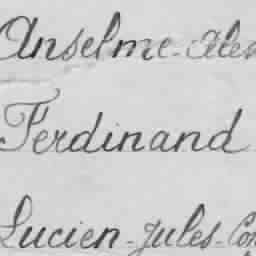 Anselme-Alex
Ferdinand
Lucien-Jules-Con